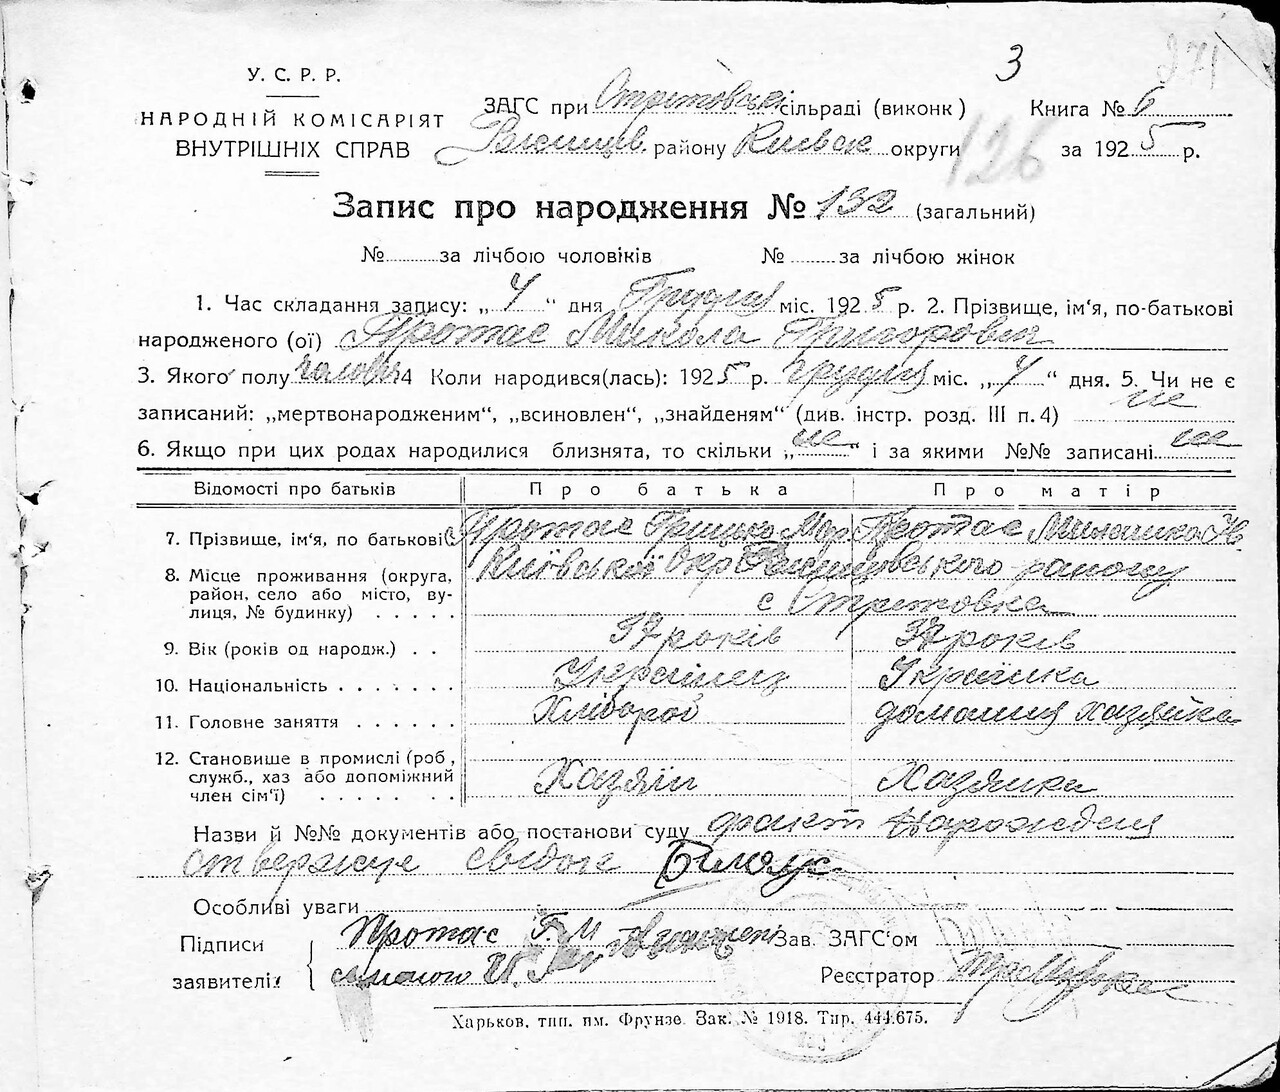 3
271
У. С. Р. Р.
НАРОДНІЙ КОМІСАРІЯТ
ВНУТРІШНІХ СПРАВ
ЗАГС при Стретовські сільраді (виконк)
району Київськ округи
126
Книга № 6
за 1925 р.
Запис про народження № 132 (загальний)
№ за лічбою чоловіків № за лічбою жінок
1. Час складання запису: „ 4 “ дня Грудня міс. 1925 р. 2. Прізвище, ім'я, по-батькові
народженого (ої) Протас Микола Григорович
3. Якого полу чоловіч 4 Коли народився(лась): 1925 р. грудня міс. „ 4 “ дня. 5. Чи не є
записаний: „мертвонародженим“, „всиновлен“, „знайденям“ (див. інстр. розд. III п. 4) не
6. Якщо при цих родах народилися близнята, то скільки „ не “ і за якими №№ записані не
Відомості про батьків Про батька Про матір
7. Прізвище, ім'я, по батькові Протас Грицько Мар Протас
8. Місце проживання (округа, район, село або місто, вулиця, № будинку) Київської Окр району
с Стретовка
9. Вік (років од народж.) років 37 років
10. Національність Українец Українка
11. Головне заняття Хлібороб домашня хазяйка
12. Становище в промислі (роб, служб., хаз або допоміжний член сім'ї) Хазяїн Хазяйка
Назви й №№ документів або постанови суду факт народження
ствержує свідок Білоус
Особливі уваги
Підписи заявителів Протас Г. М
Зав. ЗАГС'ом
Реєстратор
Харьков, тип. им. Фрунзе Зак. № 1918. Тир. 444.675.